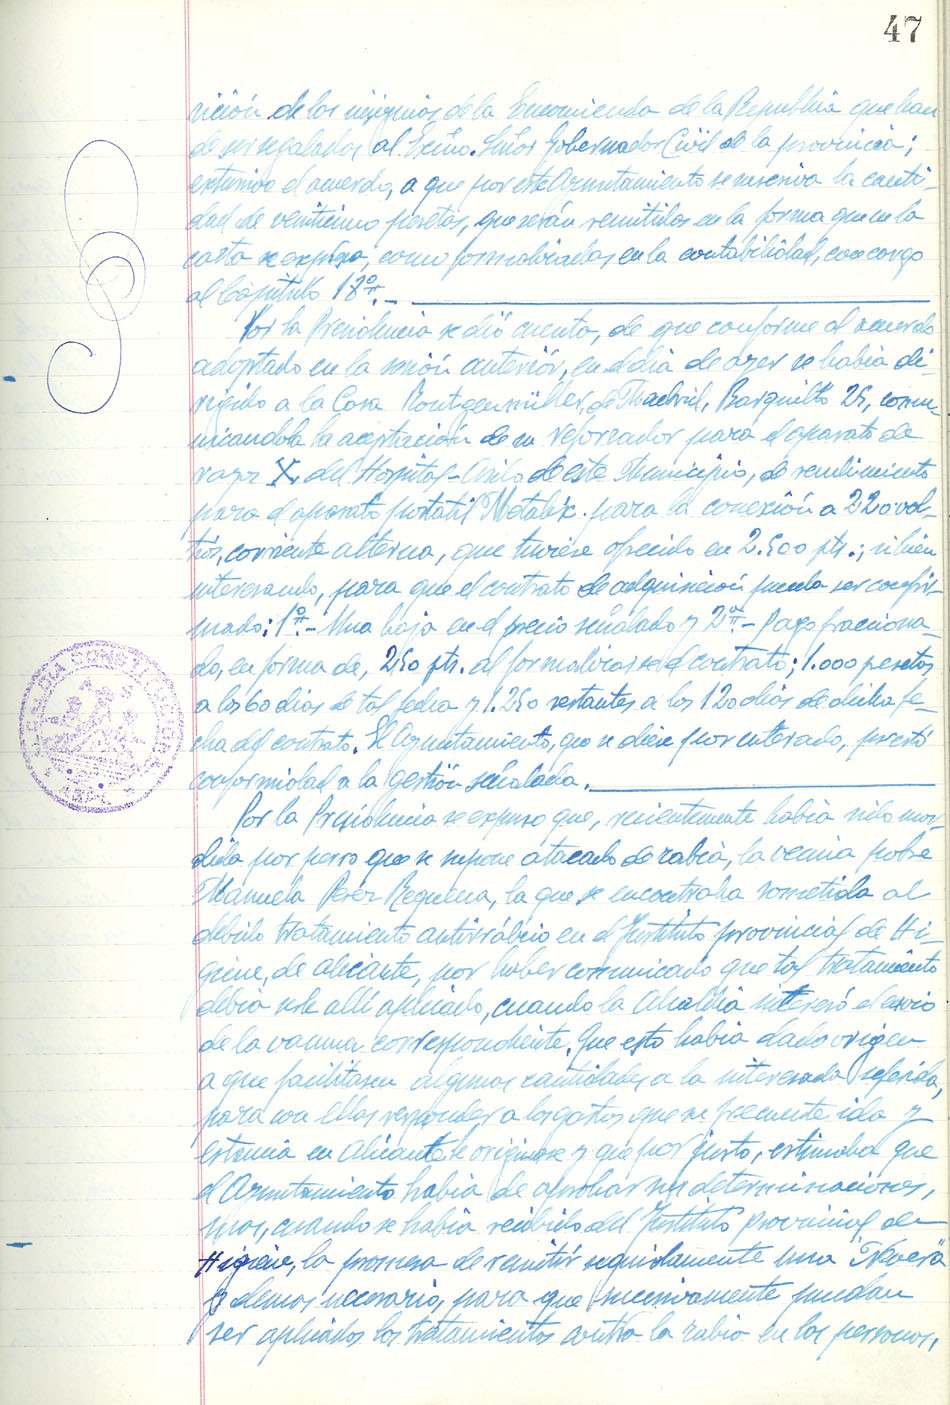 47
sición de las insignias de la Encomienda de la República que han
de ser regaladas al Excmo. Señor Gobernador Civil de la provincia;
extensivo el acuerdo, a que por este Ayuntamiento se suscriva la canti-
dad de veinticinco pesetas, que serán remitidas en la forma que en la
carta se expresa, como formalizadas en la contabilidad, con cargo
al Capítulo 18º.-
Por la Presidencia se dió cuenta, de que conforme al acuerdo
adoptado en la sesión anterior, en el día de ayer se había di-
rigido a la Casa Rontgenmüller, de Madrid, Barquillo 25, comu-
nicandola la aceptación de su reforzador para el aparato de
rayos X, del Hospital-Asilo de este Municipio, de rendimiento
para el aparato portatil Metalix para la conexión a 220 vol-
tios, corriente alterna, que tuviese ofrecido en 2.500 pts.; si bien
interesando, para que el contrato de adquisición pueda ser confir-
mado: 1º.- Una baja en el precio señalado y 2º.- Pago fracciona-
do, en forma de, 250 pts. al formalizarse el contrato; 1.000 pesetas
a los 60 días de tal fecha y 1.250 restantes a los 120 días de dicha fe-
cha del contrato. El Ayuntamiento, que se dice por enterado, prestó
conformidad a la gestión señalada.
Por la Presidencia se expuso que, recientemente había sido mor-
dida por perro que se supone atacado de rabia, la vecina pobre
Manuela Perez Requena, la que se encontraba sometida al
debido tratamiento antirrábico en el Instituto provincial de Hi-
giene, de Alicante, por haber comunicado que tal tratamiento
debía serle allí aplicado, cuando la Alcaldía interesó el envio
de la vacuna correspondiente. Que esto había dado origen
a que facilitasen algunas cantidades a la interesada referida,
para con ellas responder a los gastos que su frecuente ida y
estancia en Alicante le originase y que por justo, estimaba que
el Ayuntamiento había de aprobar sus determinaciones,
mas, cuando se había recibido del Instituto provincial de
Higiene, la promesa de remitir seguidamente una "Nevera"
y demas necesario, para que sucesivamente puedan
ser aplicados los tratamientos contra la rabia en las personas,